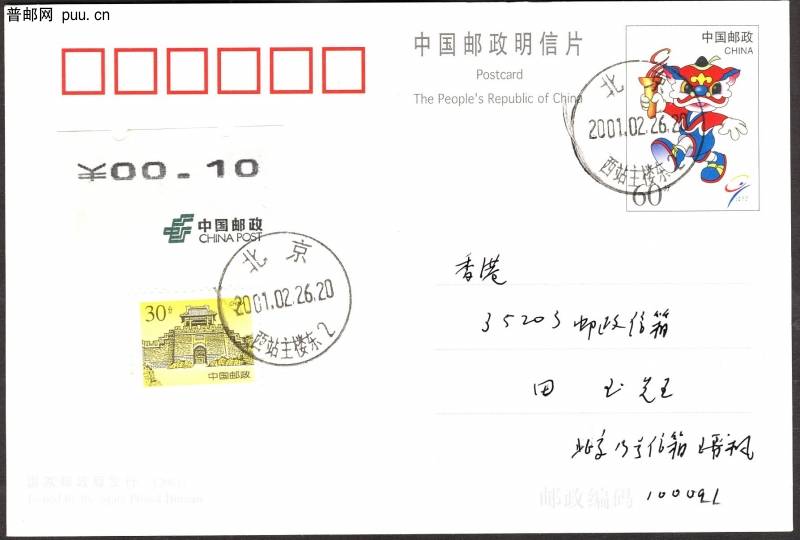 普邮网 puu.cn
中国邮政明信片
Postcard
The People's Republic of China
中国邮政
CHINA
60分
北京
2001.02.26.20
西站主楼东2
¥00.10
中国邮政
CHINA POST
北京
2001.02.26.20
西站主楼东2
30分
中国邮政
香港
35203 邮政信箱
田
北京
信箱
国家邮政局发行
Issued by the State Postal Bureau
邮政编码
100091